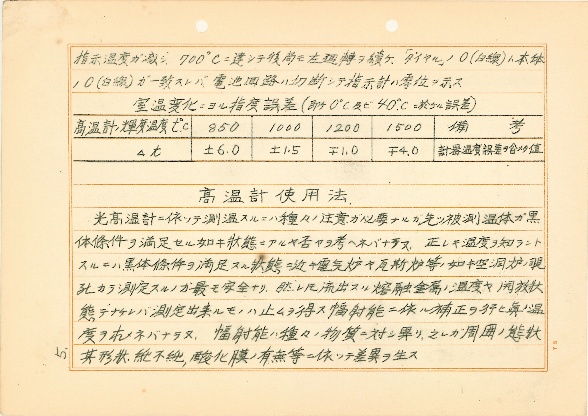 指示温度ガ減ジ 700°C ニ達シテ後尚モ左廻轉ヲ續ケ「ダイヤル」ノ O(白線)ト本体
ノ O(白線)ガ一致スレバ 電池回路ハ切断シテ指示計ハ零位ヲ示ス
室温変化ニヨル指度誤差(即チ0°C及ビ40°Cニ於ケル誤差)
高温計ノ輝度温度 t°C 850 1000 1200 1500 備 考
△t ±6.0 ±1.5 ∓1.0 ∓4.0 計器温度誤差ヲ含メタ値
高温計使用法.
光高温計ニ依ッテ測温スルニハ種々ノ注意ガ必要ナルガ先ヅ被測温体ガ黒
体條件ヲ満足セル如キ状態ニアルヤ否ヤヲ考ヘネバナラヌ. 正シキ温度ヲ知ラント
スルニハ黒体條件ヲ満足スル状態ニ近キ電気炉ヤ瓦斯炉等ノ如キ空洞炉ノ覗
孔カラ測定スルノガ最モ完全ナリ. 然シ 流出スル熔融金属ノ温度ヤ開放状
態デナケレバ測定出来ルモノハ止ムヲ得ズ輻射能ニ依ル補正ヲ行ヒ眞ノ温
度ヲ求メネバナラヌ. 輻射能ハ種々ノ物質ニ対シ異リ, ソレガ周囲ノ態状
其形状, 純不純, 酸化膜ノ有無等ニ依ッテ差異ヲ生ス
5.